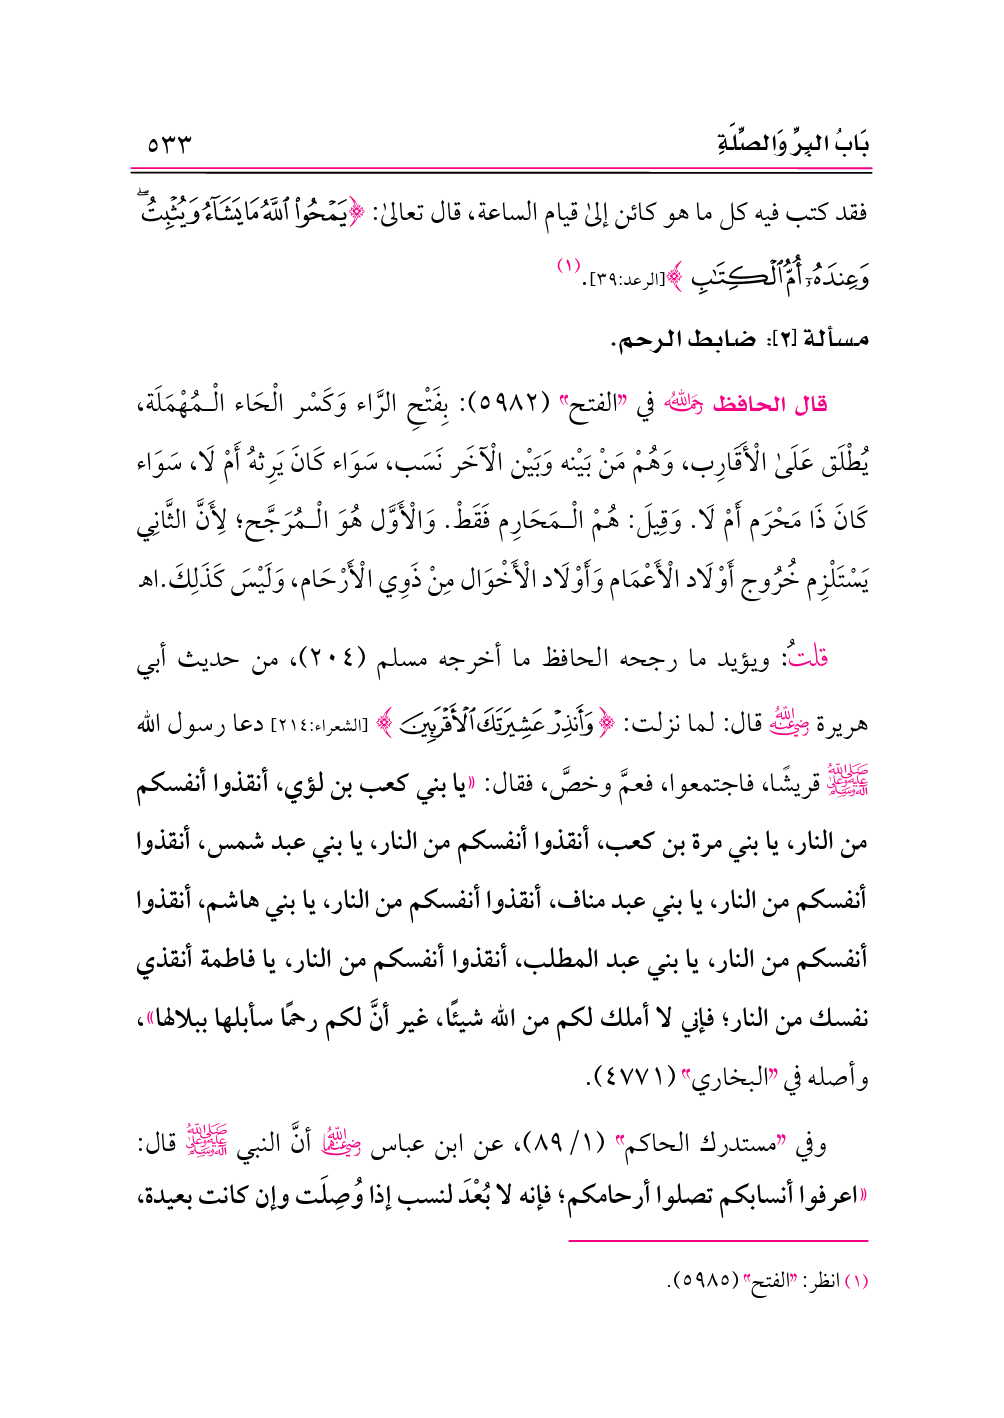 بَابُ البِرِّ وَالصِّلَةِ ٥٣٣
فقد كتب فيه كل ما هو كائن إلىٰ قيام الساعة، قال تعالىٰ: ﴿يَمۡحُواْ ٱللَّهُ مَا يَشَآءُ وَيُثۡبِتُۖ
وَعِندَهُۥٓ أُمُّ ٱلۡكِتَٰبِ﴾ [الرعد:٣٩]. (١)
مسألة [٢]: ضابط الرحم.
قال الحافظ رَحِمَهُ اللَّهُ في "الفتح" (٥٩٨٢): بِفَتْحِ الرَّاء وَكَسْر الْحَاء الْـمُهْمَلَة،
يُطْلَق عَلَىٰ الْأَقَارِب، وَهُمْ مَنْ بَيْنه وَبَيْن الْآخَر نَسَب، سَوَاء كَانَ يَرِثهُ أَمْ لَا، سَوَاء
كَانَ ذَا مَحْرَم أَمْ لَا. وَقِيلَ: هُمْ الْـمَحَارِم فَقَطْ. وَالْأَوَّل هُوَ الْـمُرَجَّح؛ لِأَنَّ الثَّانِي
يَسْتَلْزِم خُرُوج أَوْلَاد الْأَعْمَام وَأَوْلَاد الْأَخْوَال مِنْ ذَوِي الْأَرْحَام، وَلَيْسَ كَذَلِكَ.اهـ
قلتُ: ويؤيد ما رجحه الحافظ ما أخرجه مسلم (٢٠٤)، من حديث أبي
هريرة رَضِيَ اللَّهُ عَنْهُ قال: لما نزلت: ﴿وَأَنذِرۡ عَشِيرَتَكَ ٱلۡأَقۡرَبِينَ﴾ [الشعراء:٢١٤] دعا رسول الله
ﷺ قريشًا، فاجتمعوا، فعمَّ وخصَّ، فقال: «يا بني كعب بن لؤي، أنقذوا أنفسكم
من النار، يا بني مرة بن كعب، أنقذوا أنفسكم من النار، يا بني عبد شمس، أنقذوا
أنفسكم من النار، يا بني عبد مناف، أنقذوا أنفسكم من النار، يا بني هاشم، أنقذوا
أنفسكم من النار، يا بني عبد المطلب، أنقذوا أنفسكم من النار، يا فاطمة أنقذي
نفسك من النار؛ فإني لا أملك لكم من الله شيئًا، غير أنَّ لكم رحمًا سأبلها ببلالها»،
وأصله في "البخاري" (٤٧٧١).
وفي "مستدرك الحاكم" (١/ ٨٩)، عن ابن عباس رَضِيَ اللَّهُ عَنْهُمَا أنَّ النبي ﷺ قال:
«اعرفوا أنسابكم تصلوا أرحامكم؛ فإنه لا بُعْدَ لنسب إذا وُصِلَت وإن كانت بعيدة،
(١) انظر: "الفتح" (٥٩٨٥).